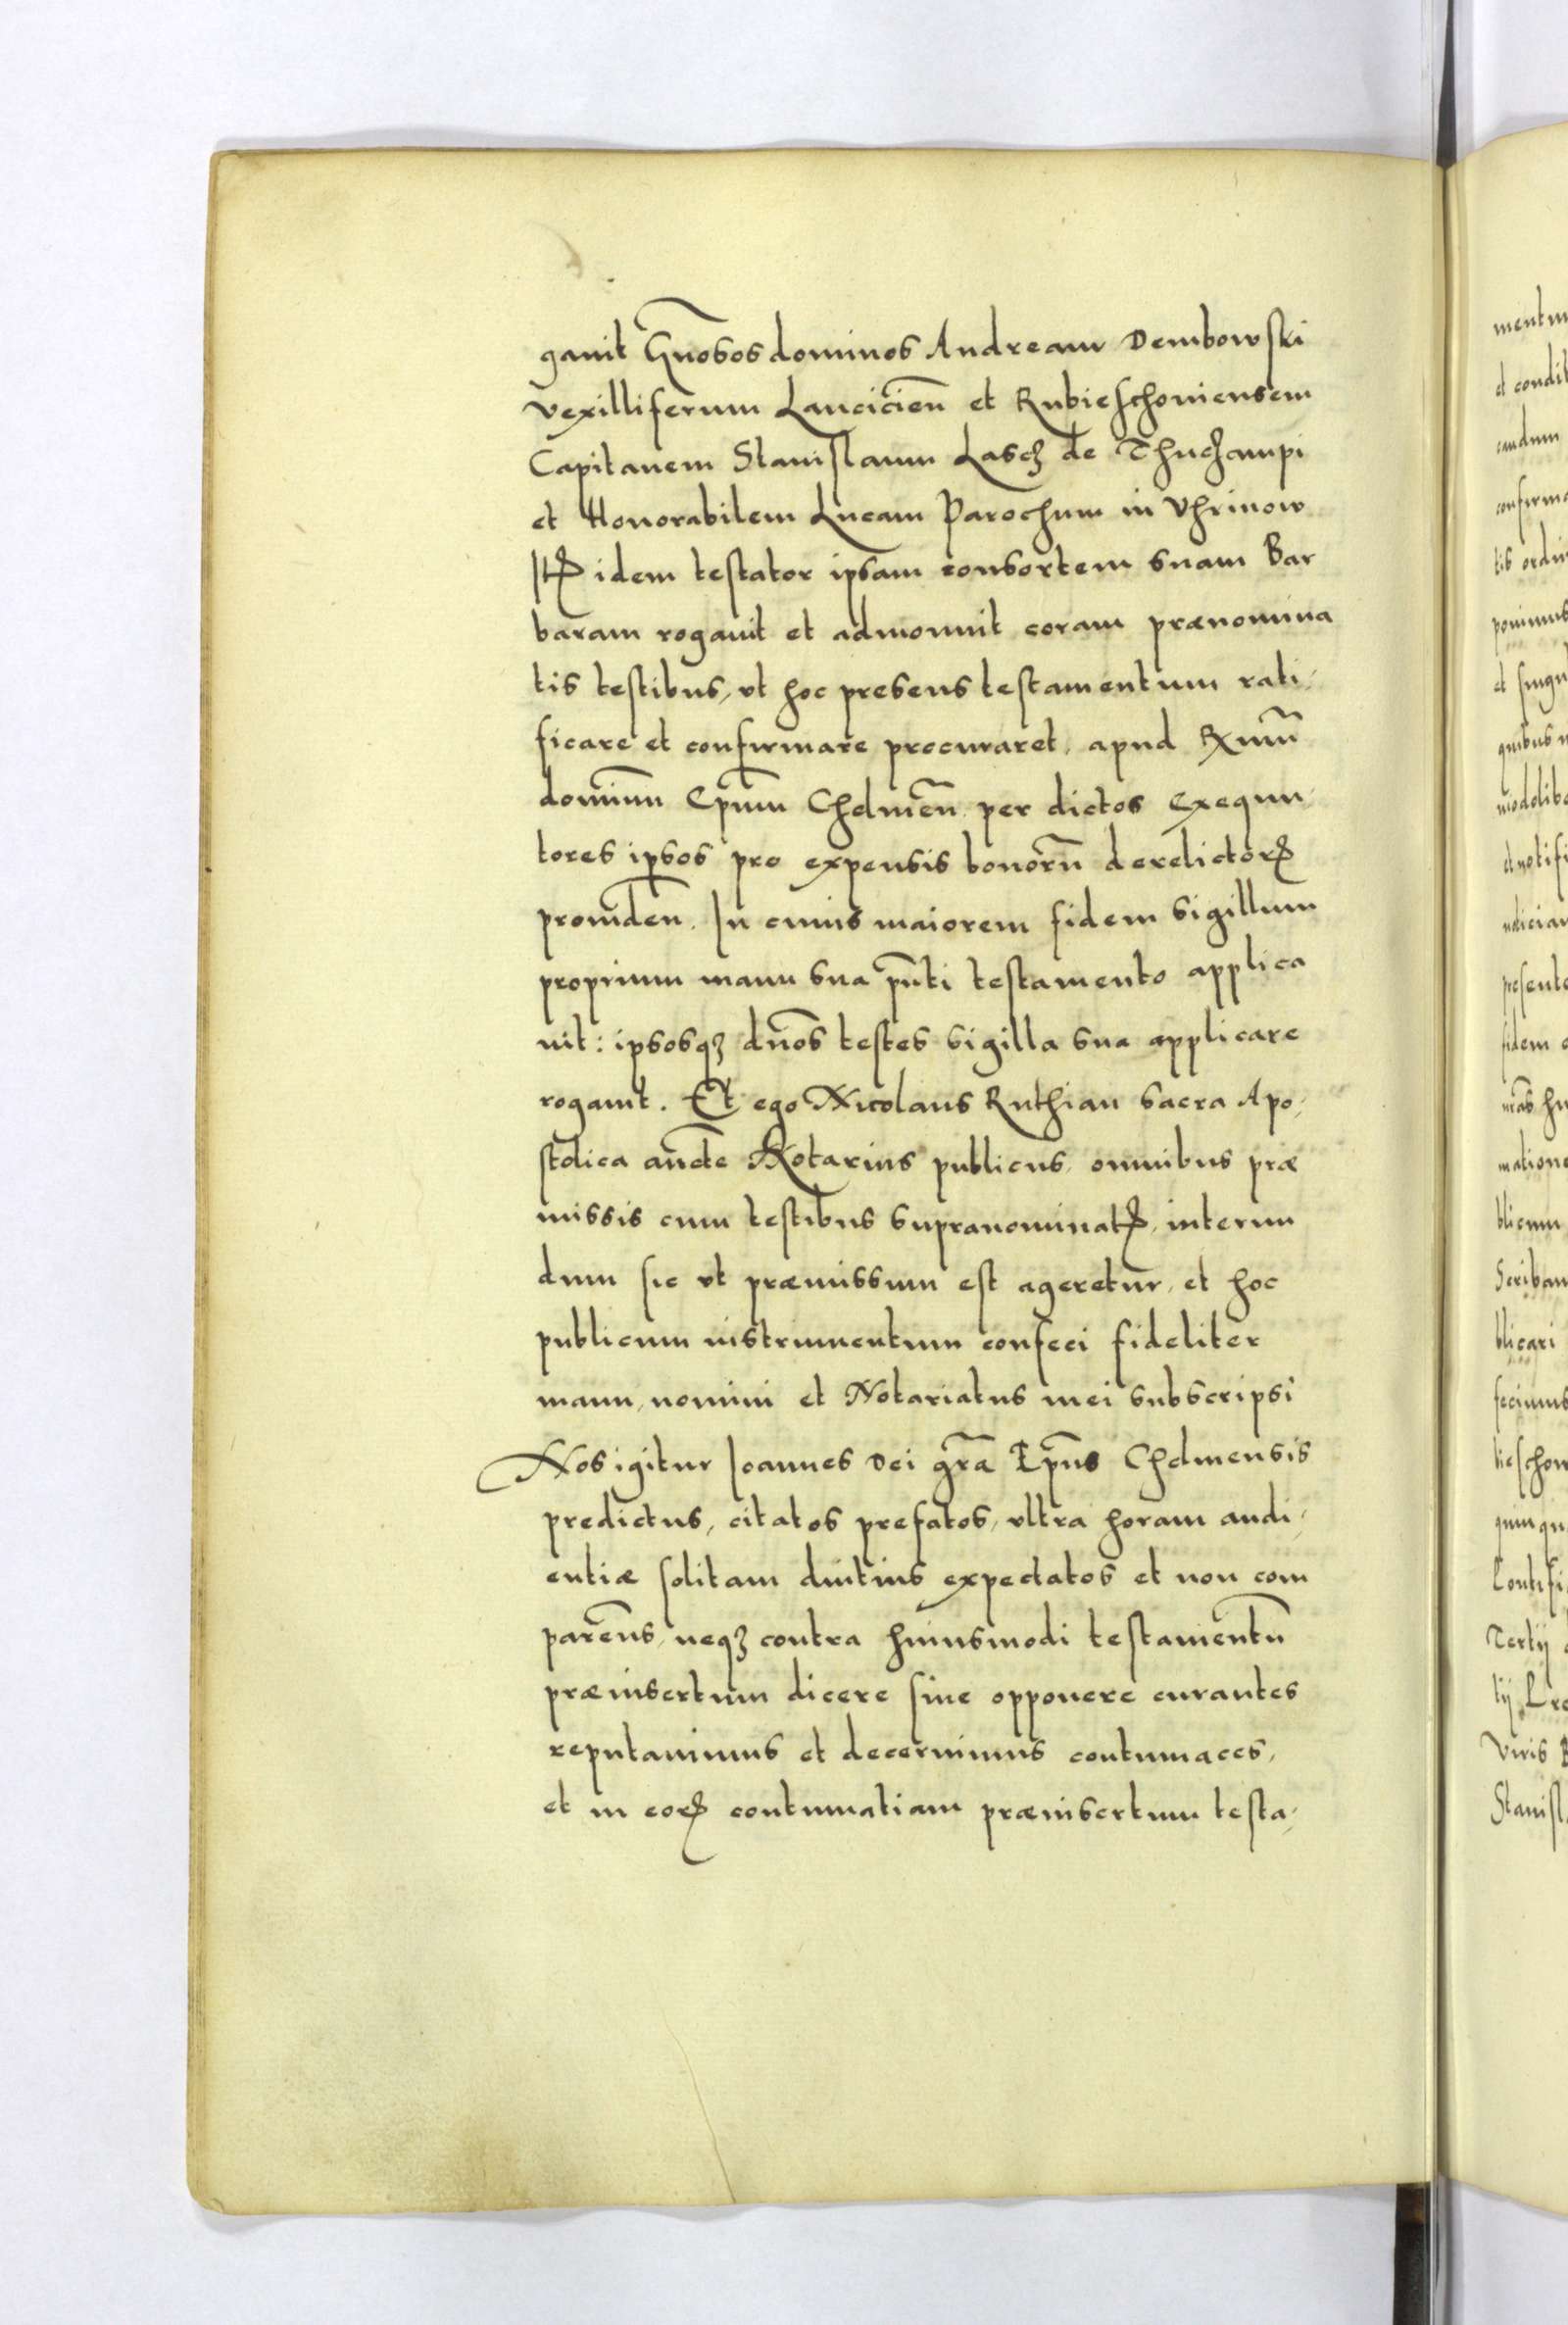 gauit Gnosos dominos Andream Dembowski
vexilliferum Lanciciẽn et Rubieschoviensem
Capitaneum Stanislaum Lasch de Thuchampi
et Honorabilem Lucam Parochum in Vhrinow
Itꝫ idem testator ipsam consortem suam Bar
baram rogauit et admonuit coram prænomina
tis testibus, vt hoc presens testamentum rati-
ficare et confirmare procuraret, apud Rxmũ
dominũ Ep̃um Chelmẽn per dictos Exequu-
tores ipsos pro expensis bonorũ derelictorꝫ
prouideñ. In cuius maiorem fidem sigillum
proprium manu sua pñti testamento applica
uit: ipsosqꝫ dños testes sigilla sua applicare
rogauit. Et ego Nicolaus Ruthian sacra Apo-
stolica aucte Notarius publicus, omnibus præ
missis cum testibus supranominatꝫ, interim
dum sic vt præmissum est ageretur, et hoc
publicum instrumentum confeci fideliter
manu, nomini et Notariatus mei subscripsi
Nos igitur Ioannes Dei gr̃a Ep̃us Chelmensis
predictus, citatos prefatos, vltra horam audi-
entiæ solitam diutius expectatos et non com
parẽns, neqꝫ contra huiusmodi testamentũ
præinsertum dicere siue opponere curantes
reputauimus et decernimus contumaces,
et in eorꝫ contumatiam præinsertum testa-